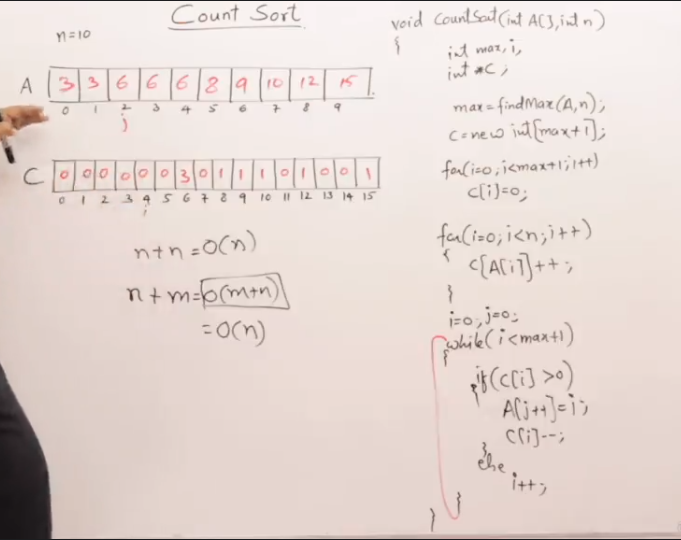 Count Sort
n=10
A 3 3 6 6 6 8 9 10 12 15
0 1 2 3 4 5 6 7 8 9
j
C 0 0 0 0 0 0 3 0 1 1 1 0 1 0 0 1
0 1 2 3 4 5 6 7 8 9 10 11 12 13 14 15
i
n+n=O(n)
n+m=O(m+n)
=O(n)
void CountSort(int A[],int n)
{
int max,i,
int *C;
max=findMax(A,n);
C=new int[max+1];
for(i=0;i<max+1;i++)
C[i]=0;
for(i=0;i<n;i++)
{
C[A[i]]++;
}
i=0;j=0;
while(i<max+1)
{
if(C[i]>0)
{
A[j++]=i;
C[i]--;
}
else
i++;
}
}